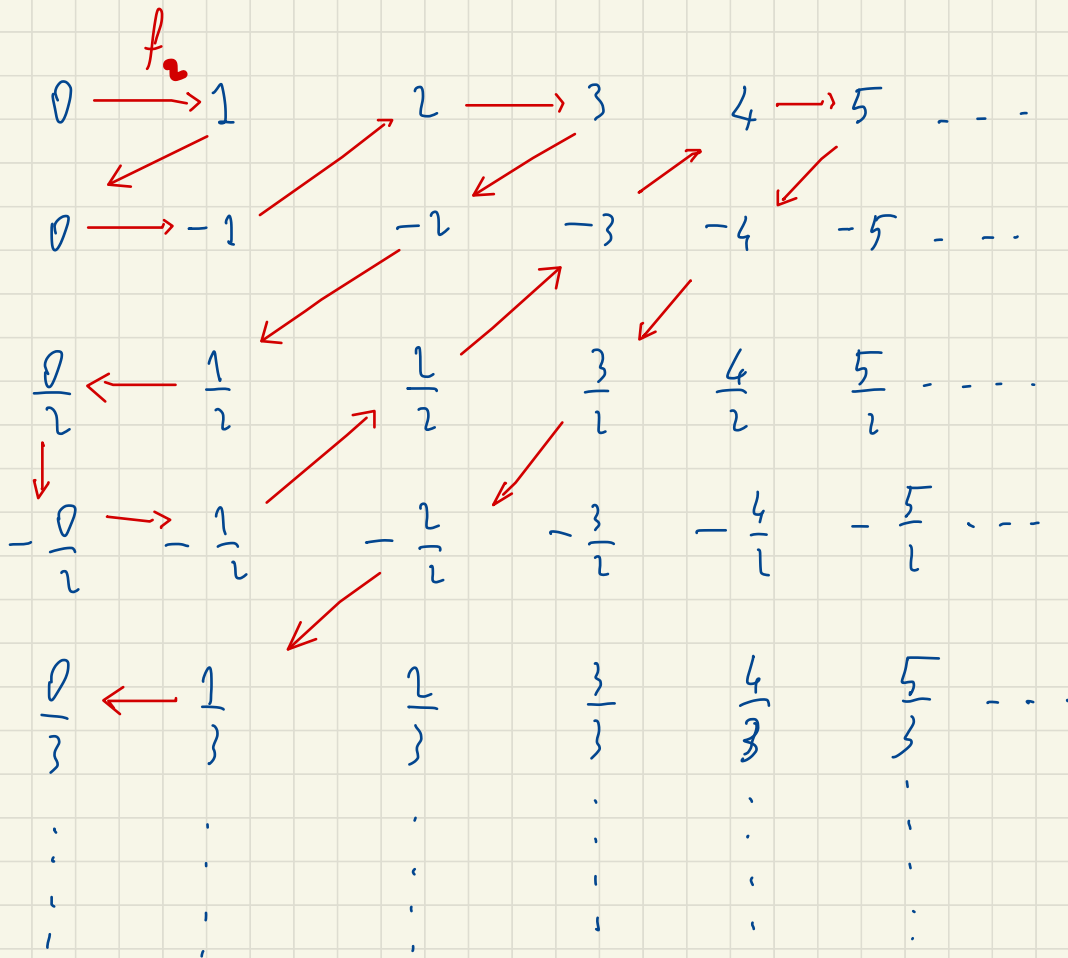 f
0 1 2 3 4 5 ....
0 -1 -2 -3 -4 -5 ....
0/2 1/2 2/2 3/2 4/2 5/2 ....
-0/2 -1/2 -2/2 -3/2 -4/2 -5/2 ....
0/3 1/3 2/3 3/3 4/3 5/3 ....